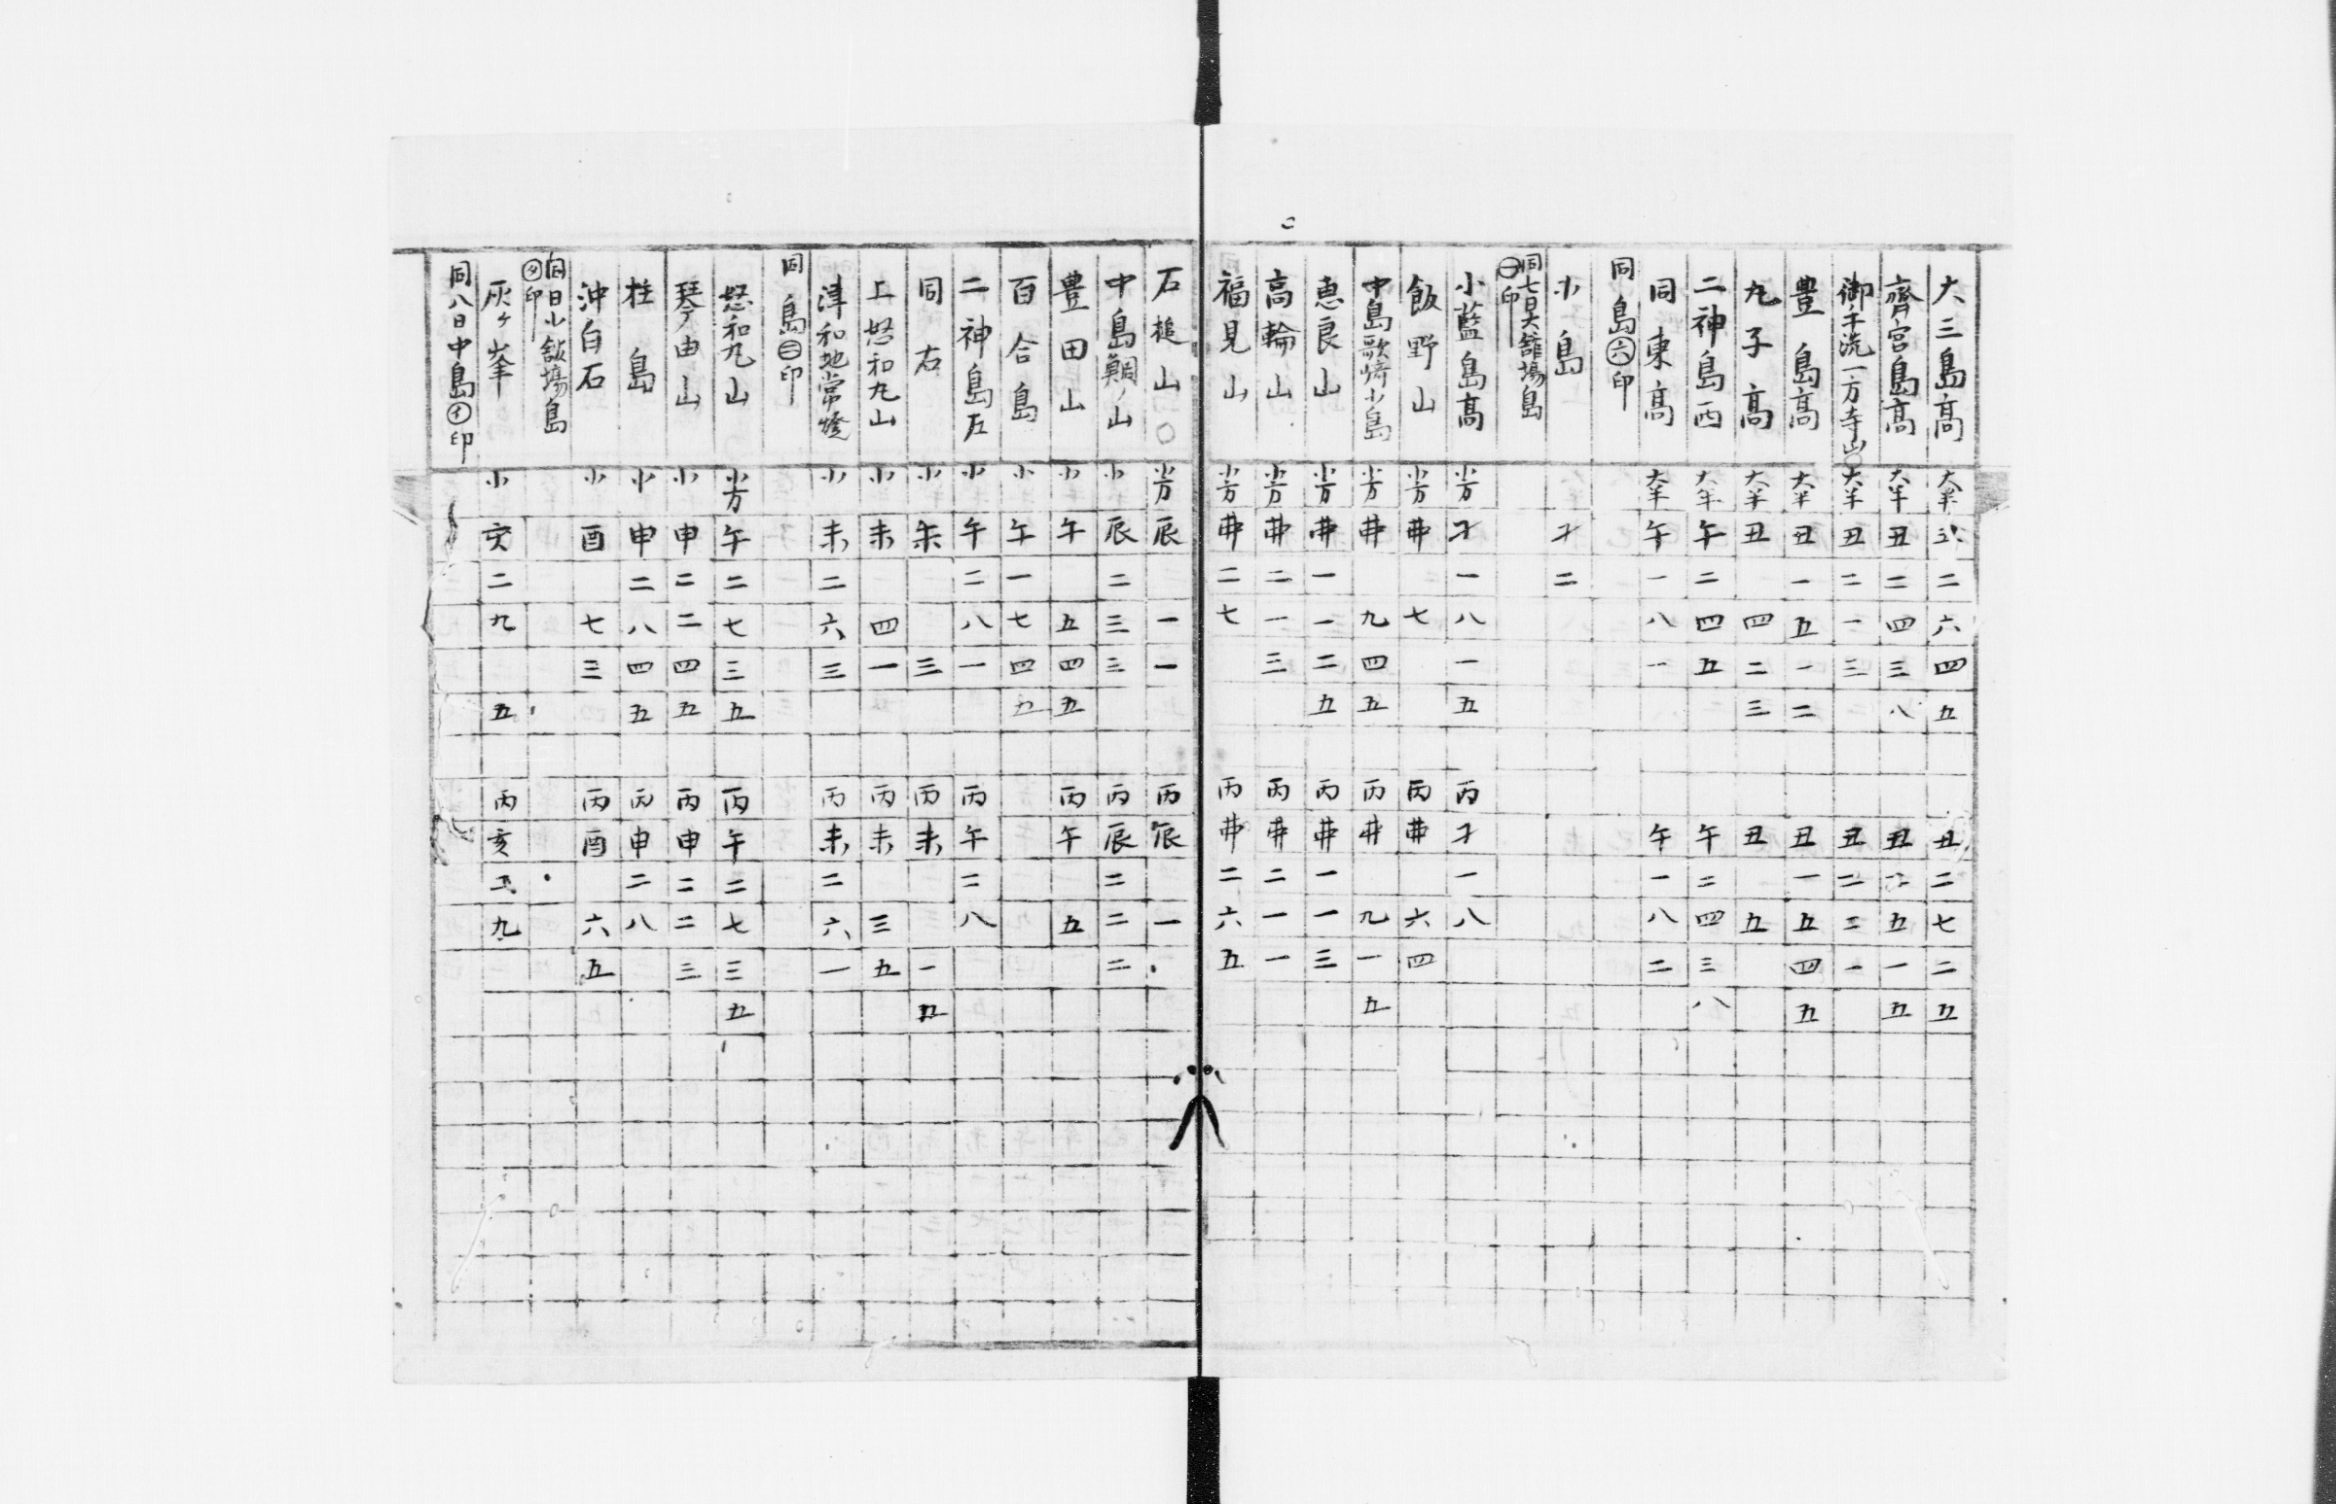 大三島高 大半 丑 二 六 四 五 丑 二 七 二 五
齊宮島高 大半 丑 二 四 三 八 丑 二 五 一 五
御手洗一方寺山 大半 丑 二 一 三 丑 二 二 一
豊島高 大半 丑 一 五 一 二 丑 一 五 四 五
丸子高 大半 丑 四 二 三 丑 五
二神島西 大半 午 二 四 五 午 二 四 三 八
同東高 大半 午 一 八 一 午 一 八 二
同島㊅印
小島 才 二
同七日大舘場島
㊀印
小藍島高 小方 才 一 八 一 五 丙 才 一 八
飯野山 小方 丗 七 丙 丗 六 四
中島歌﨑小島 小方 丗 九 四 五 丙 丗 九 一 五
恵良山 小方 丗 一 一 二 五 丙 丗 一 一 三
高輪山 小方 丗 二 一 三 丙 丗 二 一 一
福見山 小方 丗 二 七 丙 丗 二 六 五
石槌山〇 小方 辰 一 一 丙 辰 一
中島 ノ山 小 辰 二 三 三 丙 辰 二 二 二
豊田山 小 午 五 四 五 丙 午 五
百合島 小 午 一 七 四 五
二神島左 小 午 二 八 一 丙 午 二 八
同右 小 未 三 丙 未 一 五
上怒和丸山 小 未 四 一 丙 未 三 五
津和地常燈 小 未 二 六 三 丙 未 二 六 一
同島㊁印
怒和丸山 小方 午 二 七 三 五 丙 午 二 七 三 五
琴由山 小 申 二 二 四 五 丙 申 二 二 三
柱島 小 申 二 八 四 五 丙 申 二 八
沖白石 小 酉 七 三 丙 酉 六 五
同日小舘場島
印
灰ヶ峯 小 亥 二 九 五 丙 亥 九
同八日中島 印